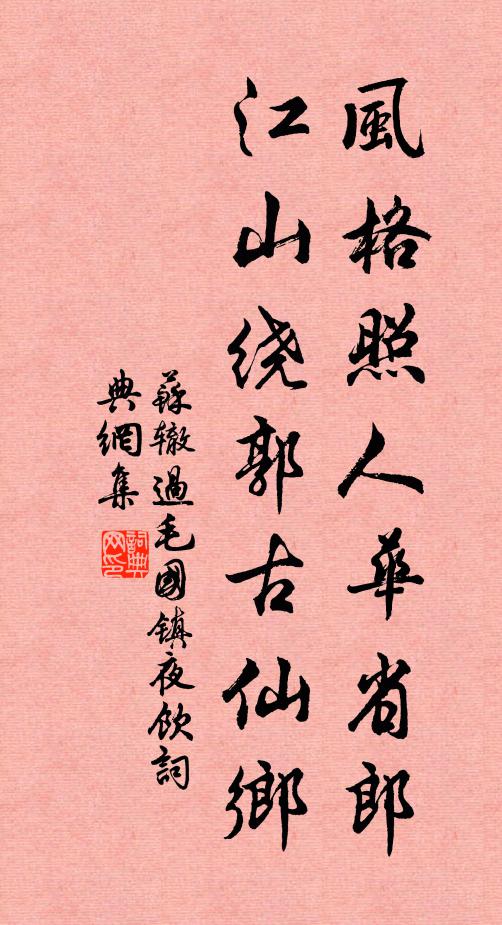 風格照人華省郎
江山绕郭古仙鄉
蘇辙過毛國镇夜飲詞
典網集
詞典
网印